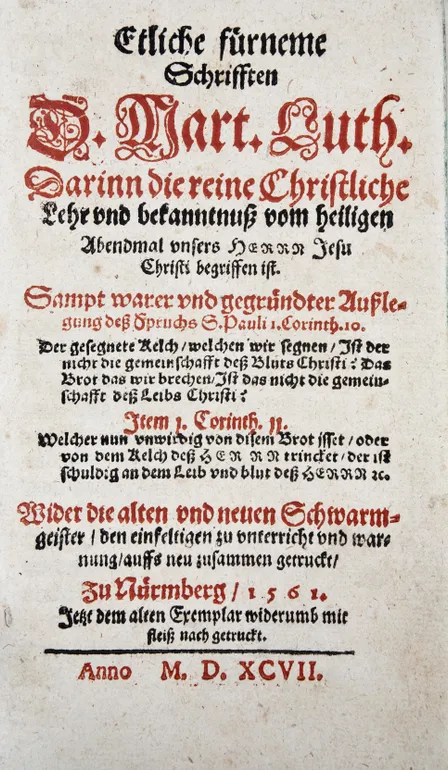 Etliche fürneme
Schrifften
D. Mart. Luth.
Darinn die reine Christliche
Lehr vnd bekanntnuß vom heiligen
Abendmal vnsers HERRN Jesu
Christi begriffen ist.
Sampt warer vnd gegründter Außle-
gung deß Spruchs S. Pauli 1. Corinth. 10.
Der gesegnete Kelch / welchen wir segnen / Ist der
nicht die gemeinschafft deß Bluts Christi? Das
Brot das wir brechen / Ist das nicht die gemein-
schafft deß Leibs Christi?
Item 1. Corinth. 11.
Welcher nun vnwirdig von disem Brot isset / oder
von dem Kelch deß HERRN trincket / der ist
schuldig an dem Leib vnd blut deß HERRN ꝛc.
Wider die alten vnd neuen Schwarm-
geister / den einfeltigen zu vnterricht vnd war-
nung / auffs neu zusammen getruckt /
zu Nürmberg / 1561.
Jetzt dem alten Exemplar widerumb mit
fleiß nach getruckt.
Anno M. D. XCVII.